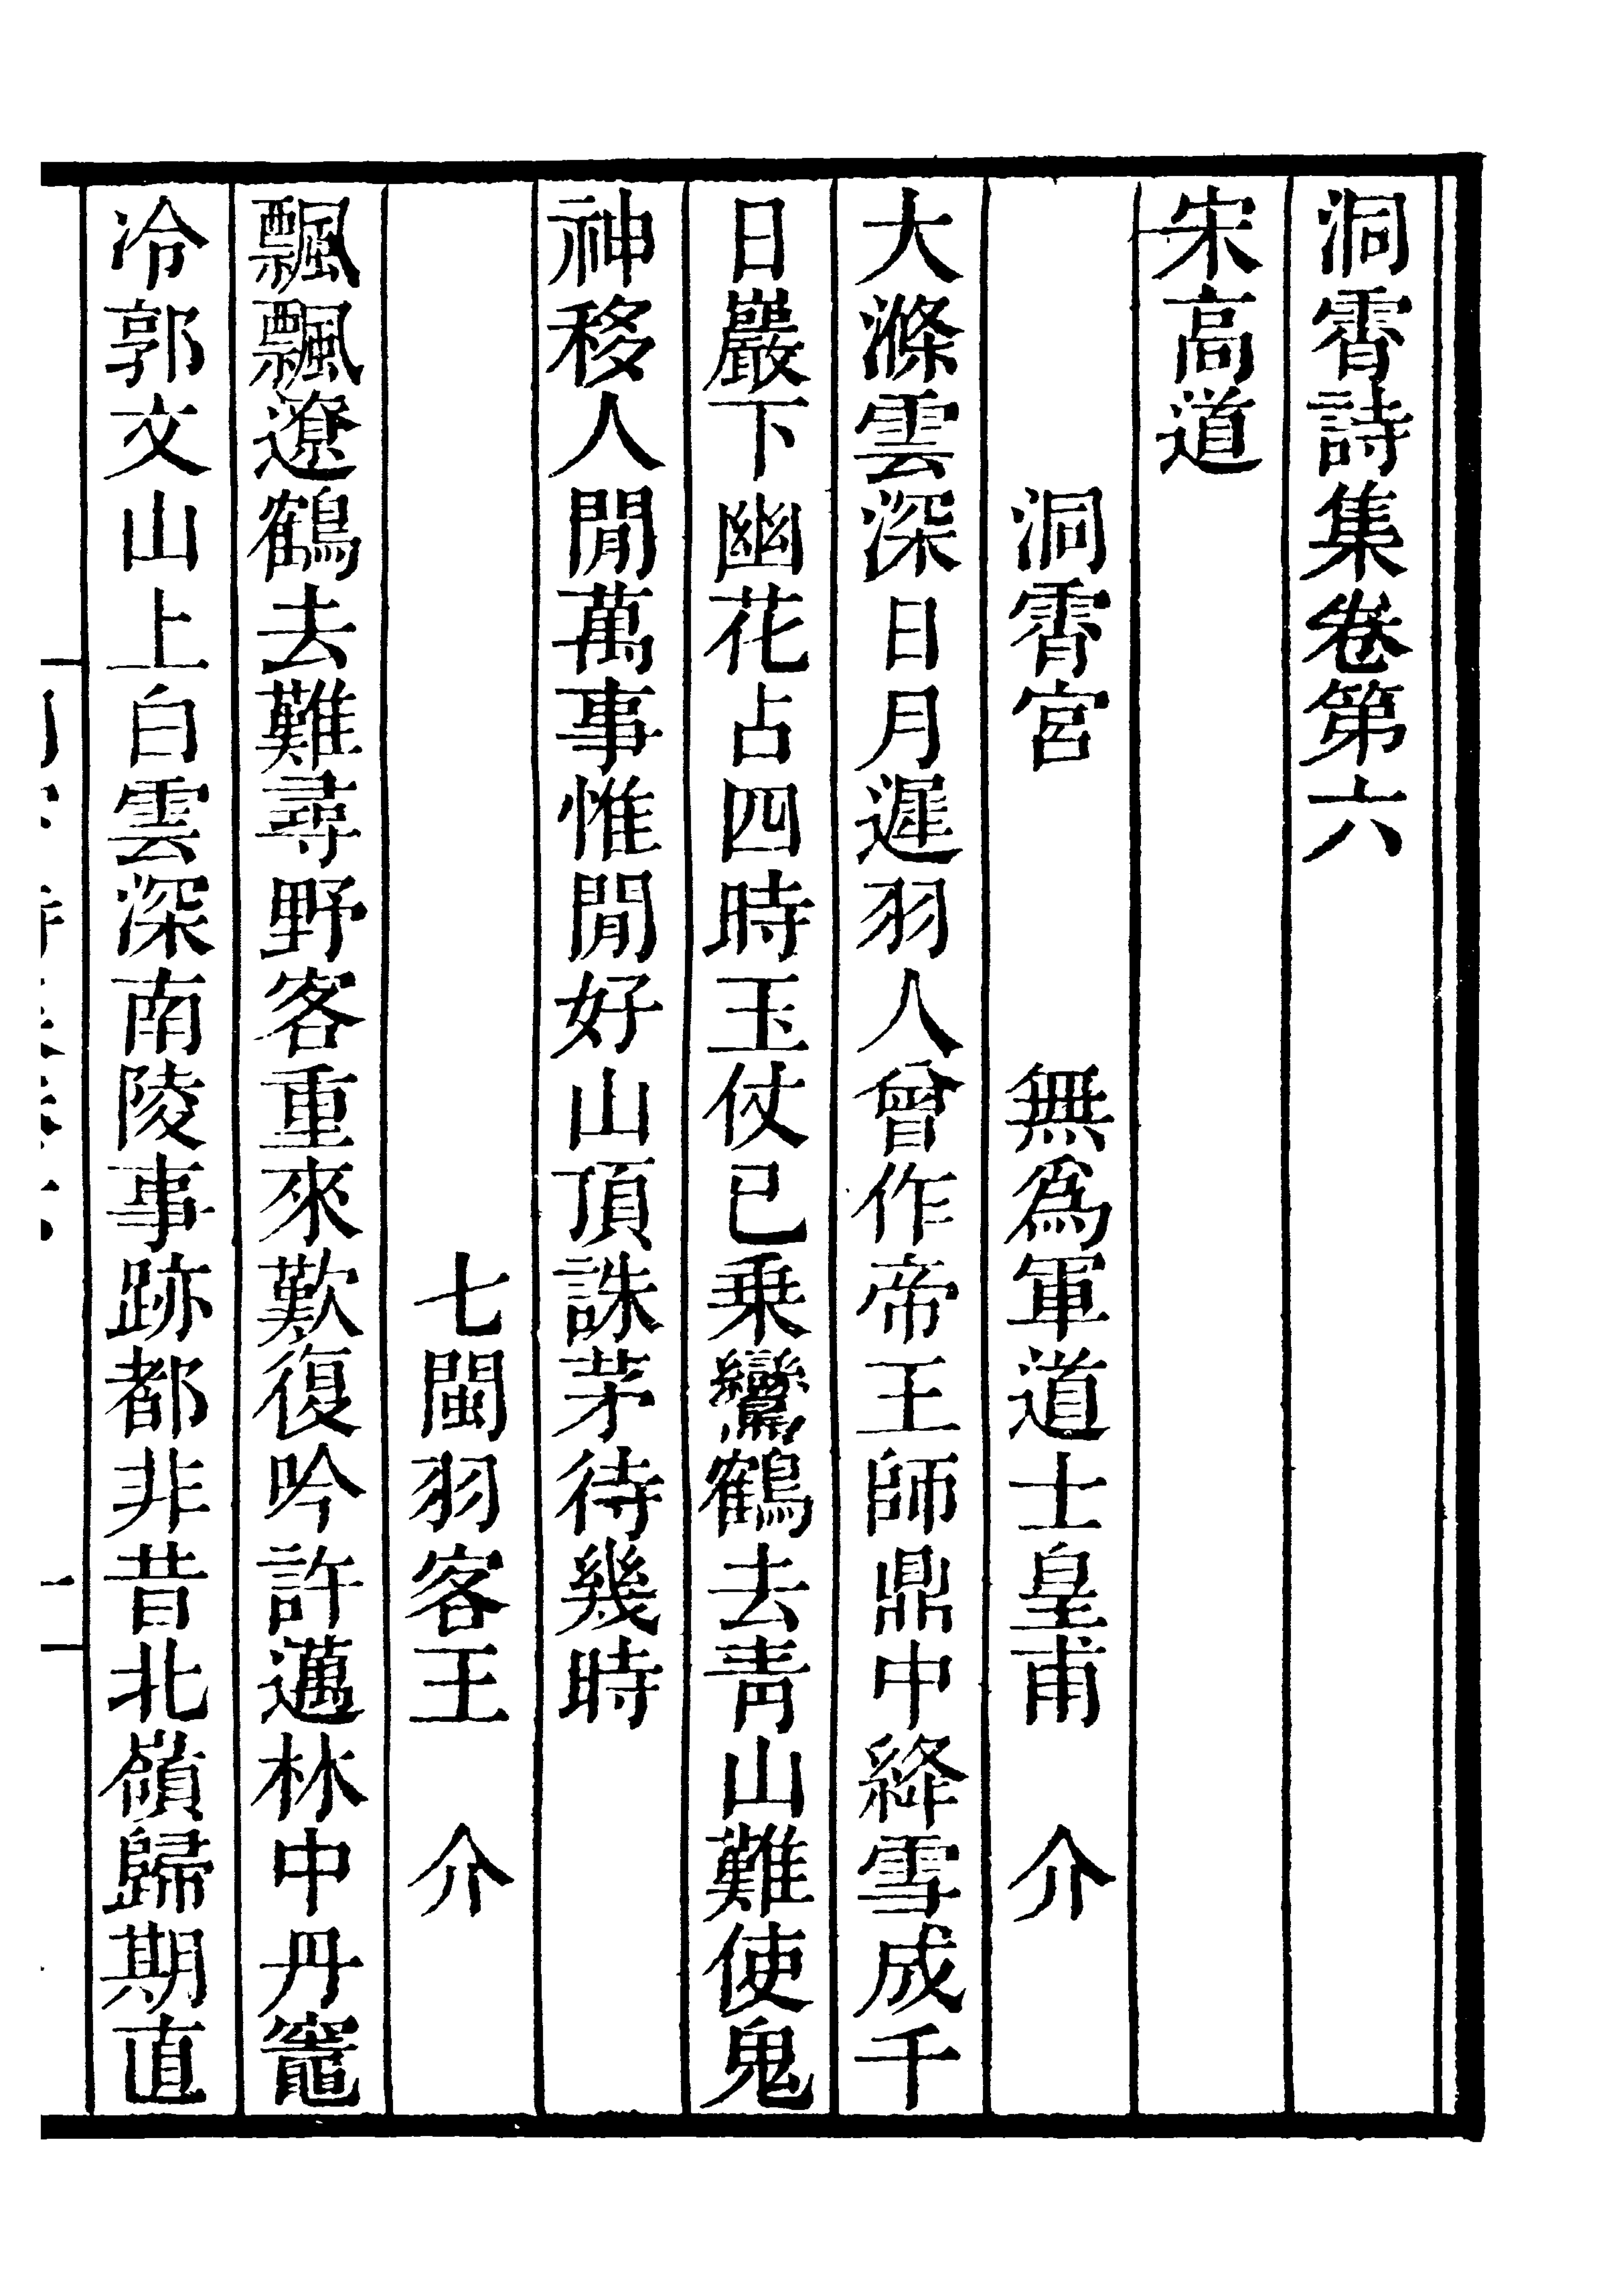 洞霄詩集卷第六
宋高道
洞霄宮　無爲軍道士皇甫　介
大滌雲深日月遲羽人曾作帝王師鼎中絳雪成千
日巖下幽花占四時玉仗已乗鸞鶴去青山難使鬼
神移人閒萬事惟閒好山頂誅茅待幾時
七閩羽客王　介
飄飄遼鶴去難尋野客重來歎復吟許邁林中丹竈
冷郭文山上白雲深南陵事跡都非昔北嶺歸期直